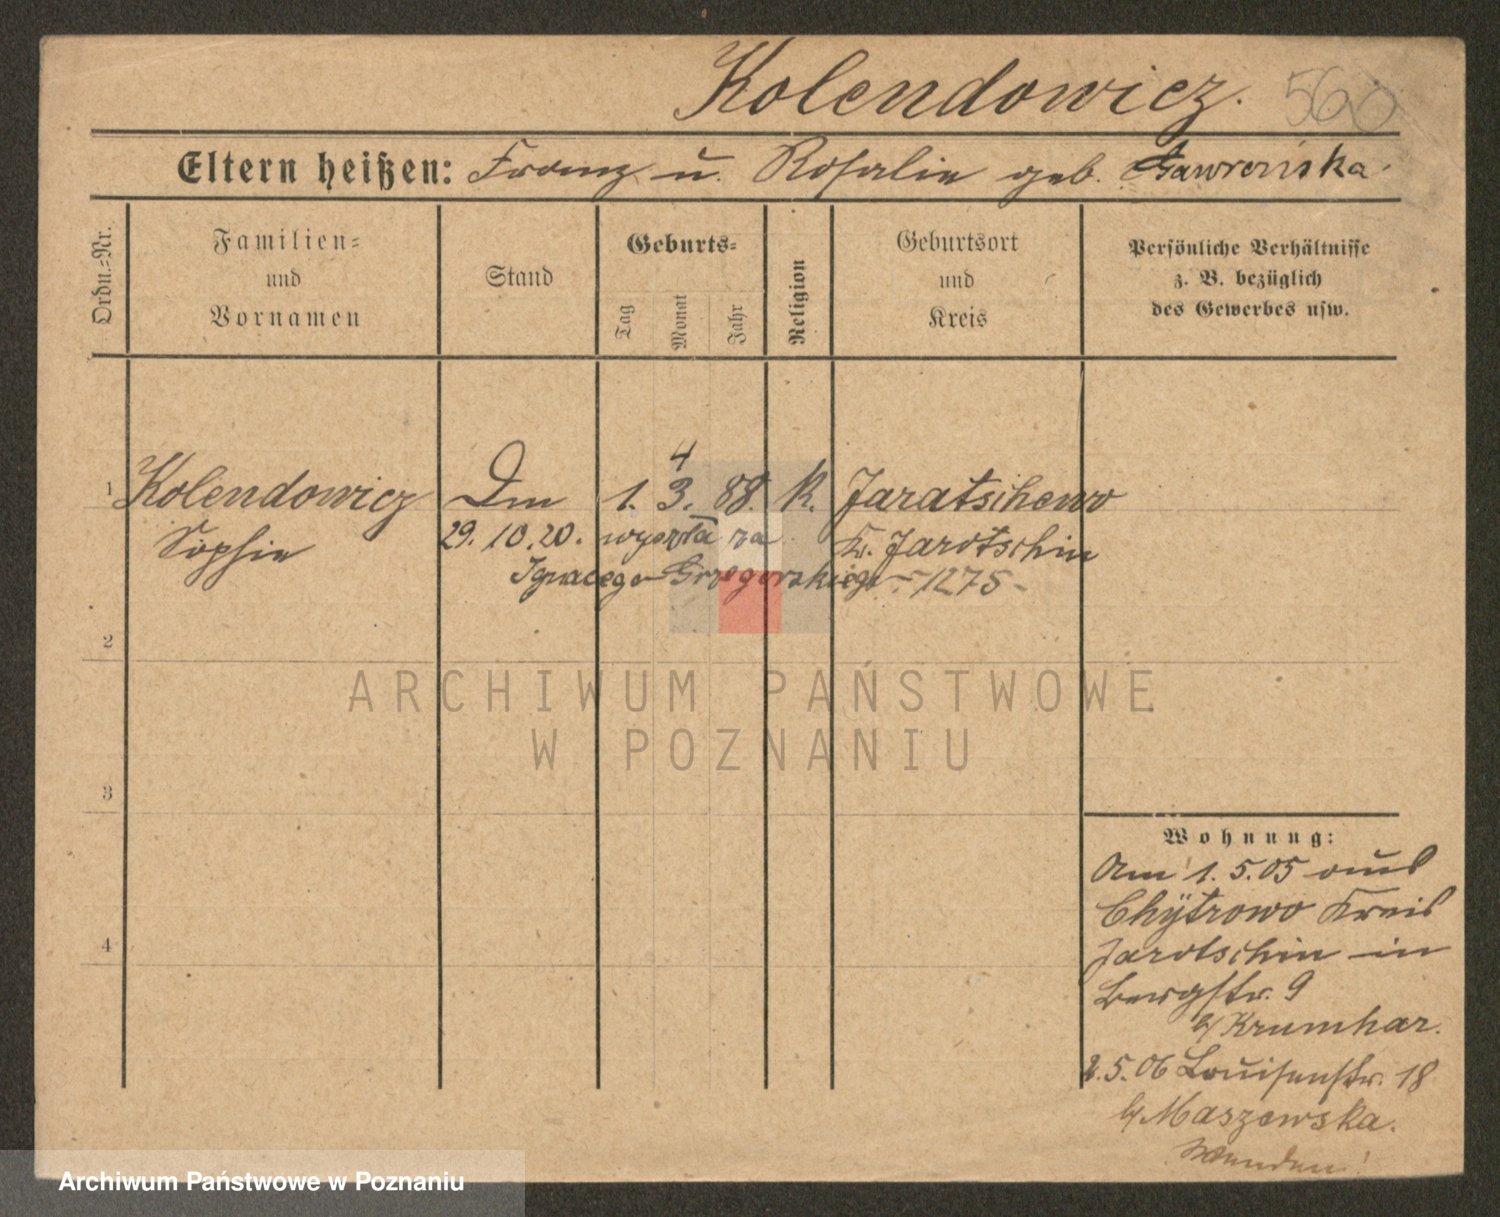 Kolendowicz. 560
Eltern heißen: Franz u. Rosalie geb. Gawrońska.
Ordn.=Nr.
Familien=
und
Vornamen
Stand
Geburts=
Tag
Monat
Jahr
Religion
Geburtsort
und
Kreis
Persönliche Verhältnisse
z. B. bezüglich
des Gewerbes usw.
4
1 Kolendowicz Dm 1. 3. 88. K. Jaratschewo
Sophie 29.10.20. wyszła za Kr. Jarotschin
Ignacego Grzegorskiego - 1275 -
2
3
4
Wohnung:
Am 1.5.05 aus
Chytrowo Kreis
Jarotschin in
Bergstr. 9
b/ Krumhar.
2.5.06 Louisenstr. 18
b/ Maszewska.
Wenden!
ARCHIWUM PAŃSTWOWE
W POZNANIU
Archiwum Państwowe w Poznaniu